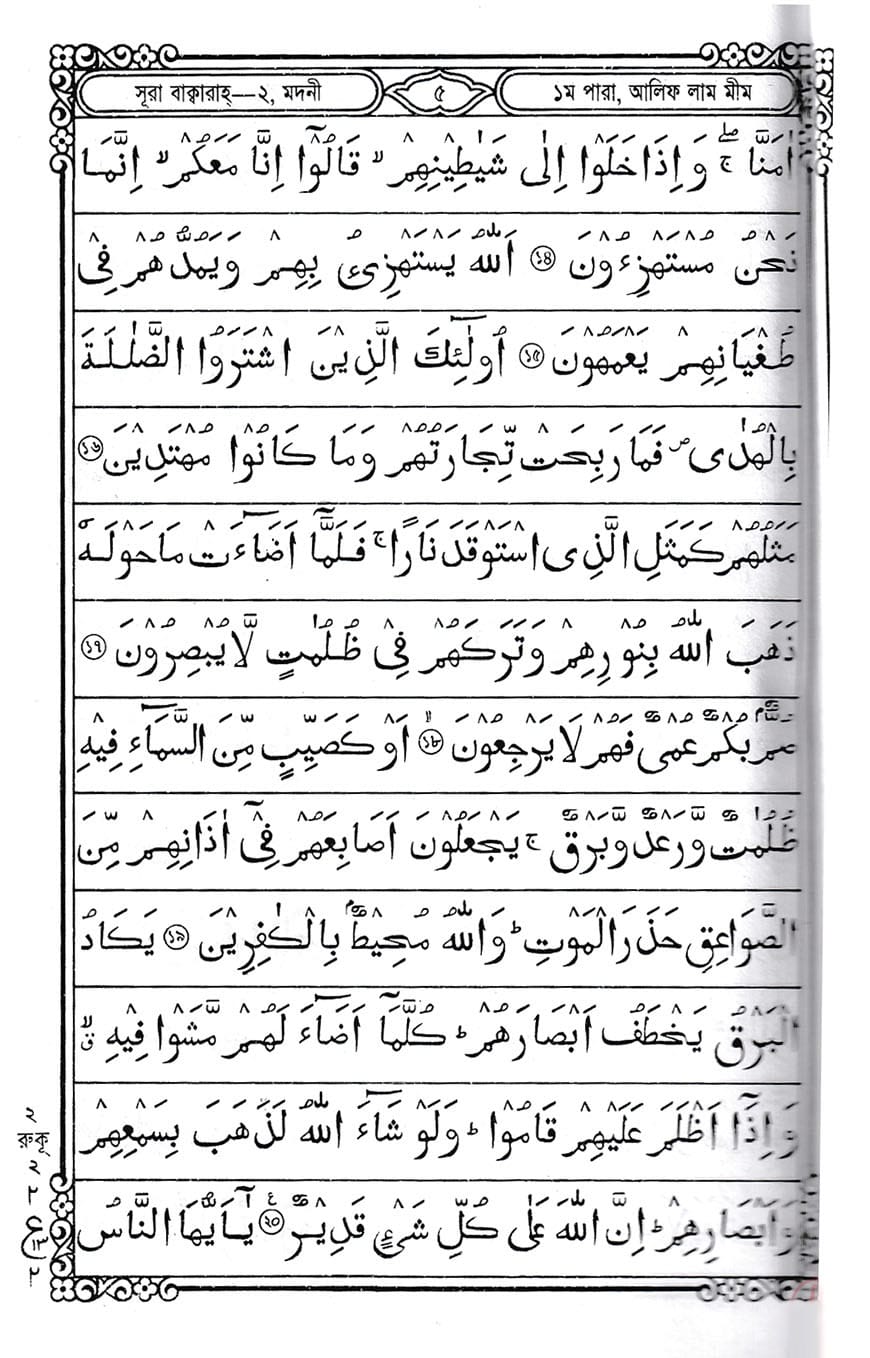 সূরা বাক্বারাহ্—২, মদনী
৫
১ম পারা, আলিফ লাম মীম
اٰمَنَّا ۚۖ وَاِذَا خَلَوْا اِلٰى شَيٰطِيْنِهِمْ ۙ قَالُوْۤا اِنَّا مَعَكُمْ ۙ اِنَّمَا
نَحْنُ مُسْتَهْزِءُوْنَ ১৪ اَللّٰهُ يَسْتَهْزِئُ بِهِمْ وَيَمُدُّهُمْ فِىْ
طُغْيَانِهِمْ يَعْمَهُوْنَ ১৫ اُولٰٓئِكَ الَّذِيْنَ اشْتَرَوُا الضَّلٰلَةَ
بِالْهُدٰى ۪ فَمَا رَبِحَتْ تِّجَارَتُهُمْ وَمَا كَانُوْا مُهْتَدِيْنَ ১৬
مَثَلُهُمْ كَمَثَلِ الَّذِى اسْتَوْقَدَ نَارًا ۚ فَلَمَّاۤ اَضَاۤءَتْ مَا حَوْلَهٗ
ذَهَبَ اللّٰهُ بِنُوْرِهِمْ وَتَرَكَهُمْ فِىْ ظُلُمٰتٍ لَّا يُبْصِرُوْنَ ১৭
صُمٌّۢ بُكْمٌ عُمْىٌ فَهُمْ لَا يَرْجِعُوْنَ ۙ ১৮ اَوْ كَصَيِّبٍ مِّنَ السَّمَاۤءِ فِيْهِ
ظُلُمٰتٌ وَّرَعْدٌ وَّبَرْقٌ ۚ يَجْعَلُوْنَ اَصَابِعَهُمْ فِىْۤ اٰذَانِهِمْ مِّنَ
الصَّوَاعِقِ حَذَرَ الْمَوْتِ ؕ وَاللّٰهُ مُحِيْطٌۢ بِالْكٰفِرِيْنَ ১৯ يَكَادُ
الْبَرْقُ يَخْطَفُ اَبْصَارَهُمْ ؕ كُلَّمَاۤ اَضَاۤءَ لَهُمْ مَّشَوْا فِيْهِ ۙۗ
وَاِذَاۤ اَظْلَمَ عَلَيْهِمْ قَامُوْا ؕ وَلَوْ شَاۤءَ اللّٰهُ لَذَهَبَ بِسَمْعِهِمْ
وَاَبْصَارِهِمْ ؕ اِنَّ اللّٰهَ عَلٰى كُلِّ شَىْءٍ قَدِيْرٌ ২০ يٰۤاَيُّهَا النَّاسُ
২
রুকূ
২
٢
ع
১৩
٢